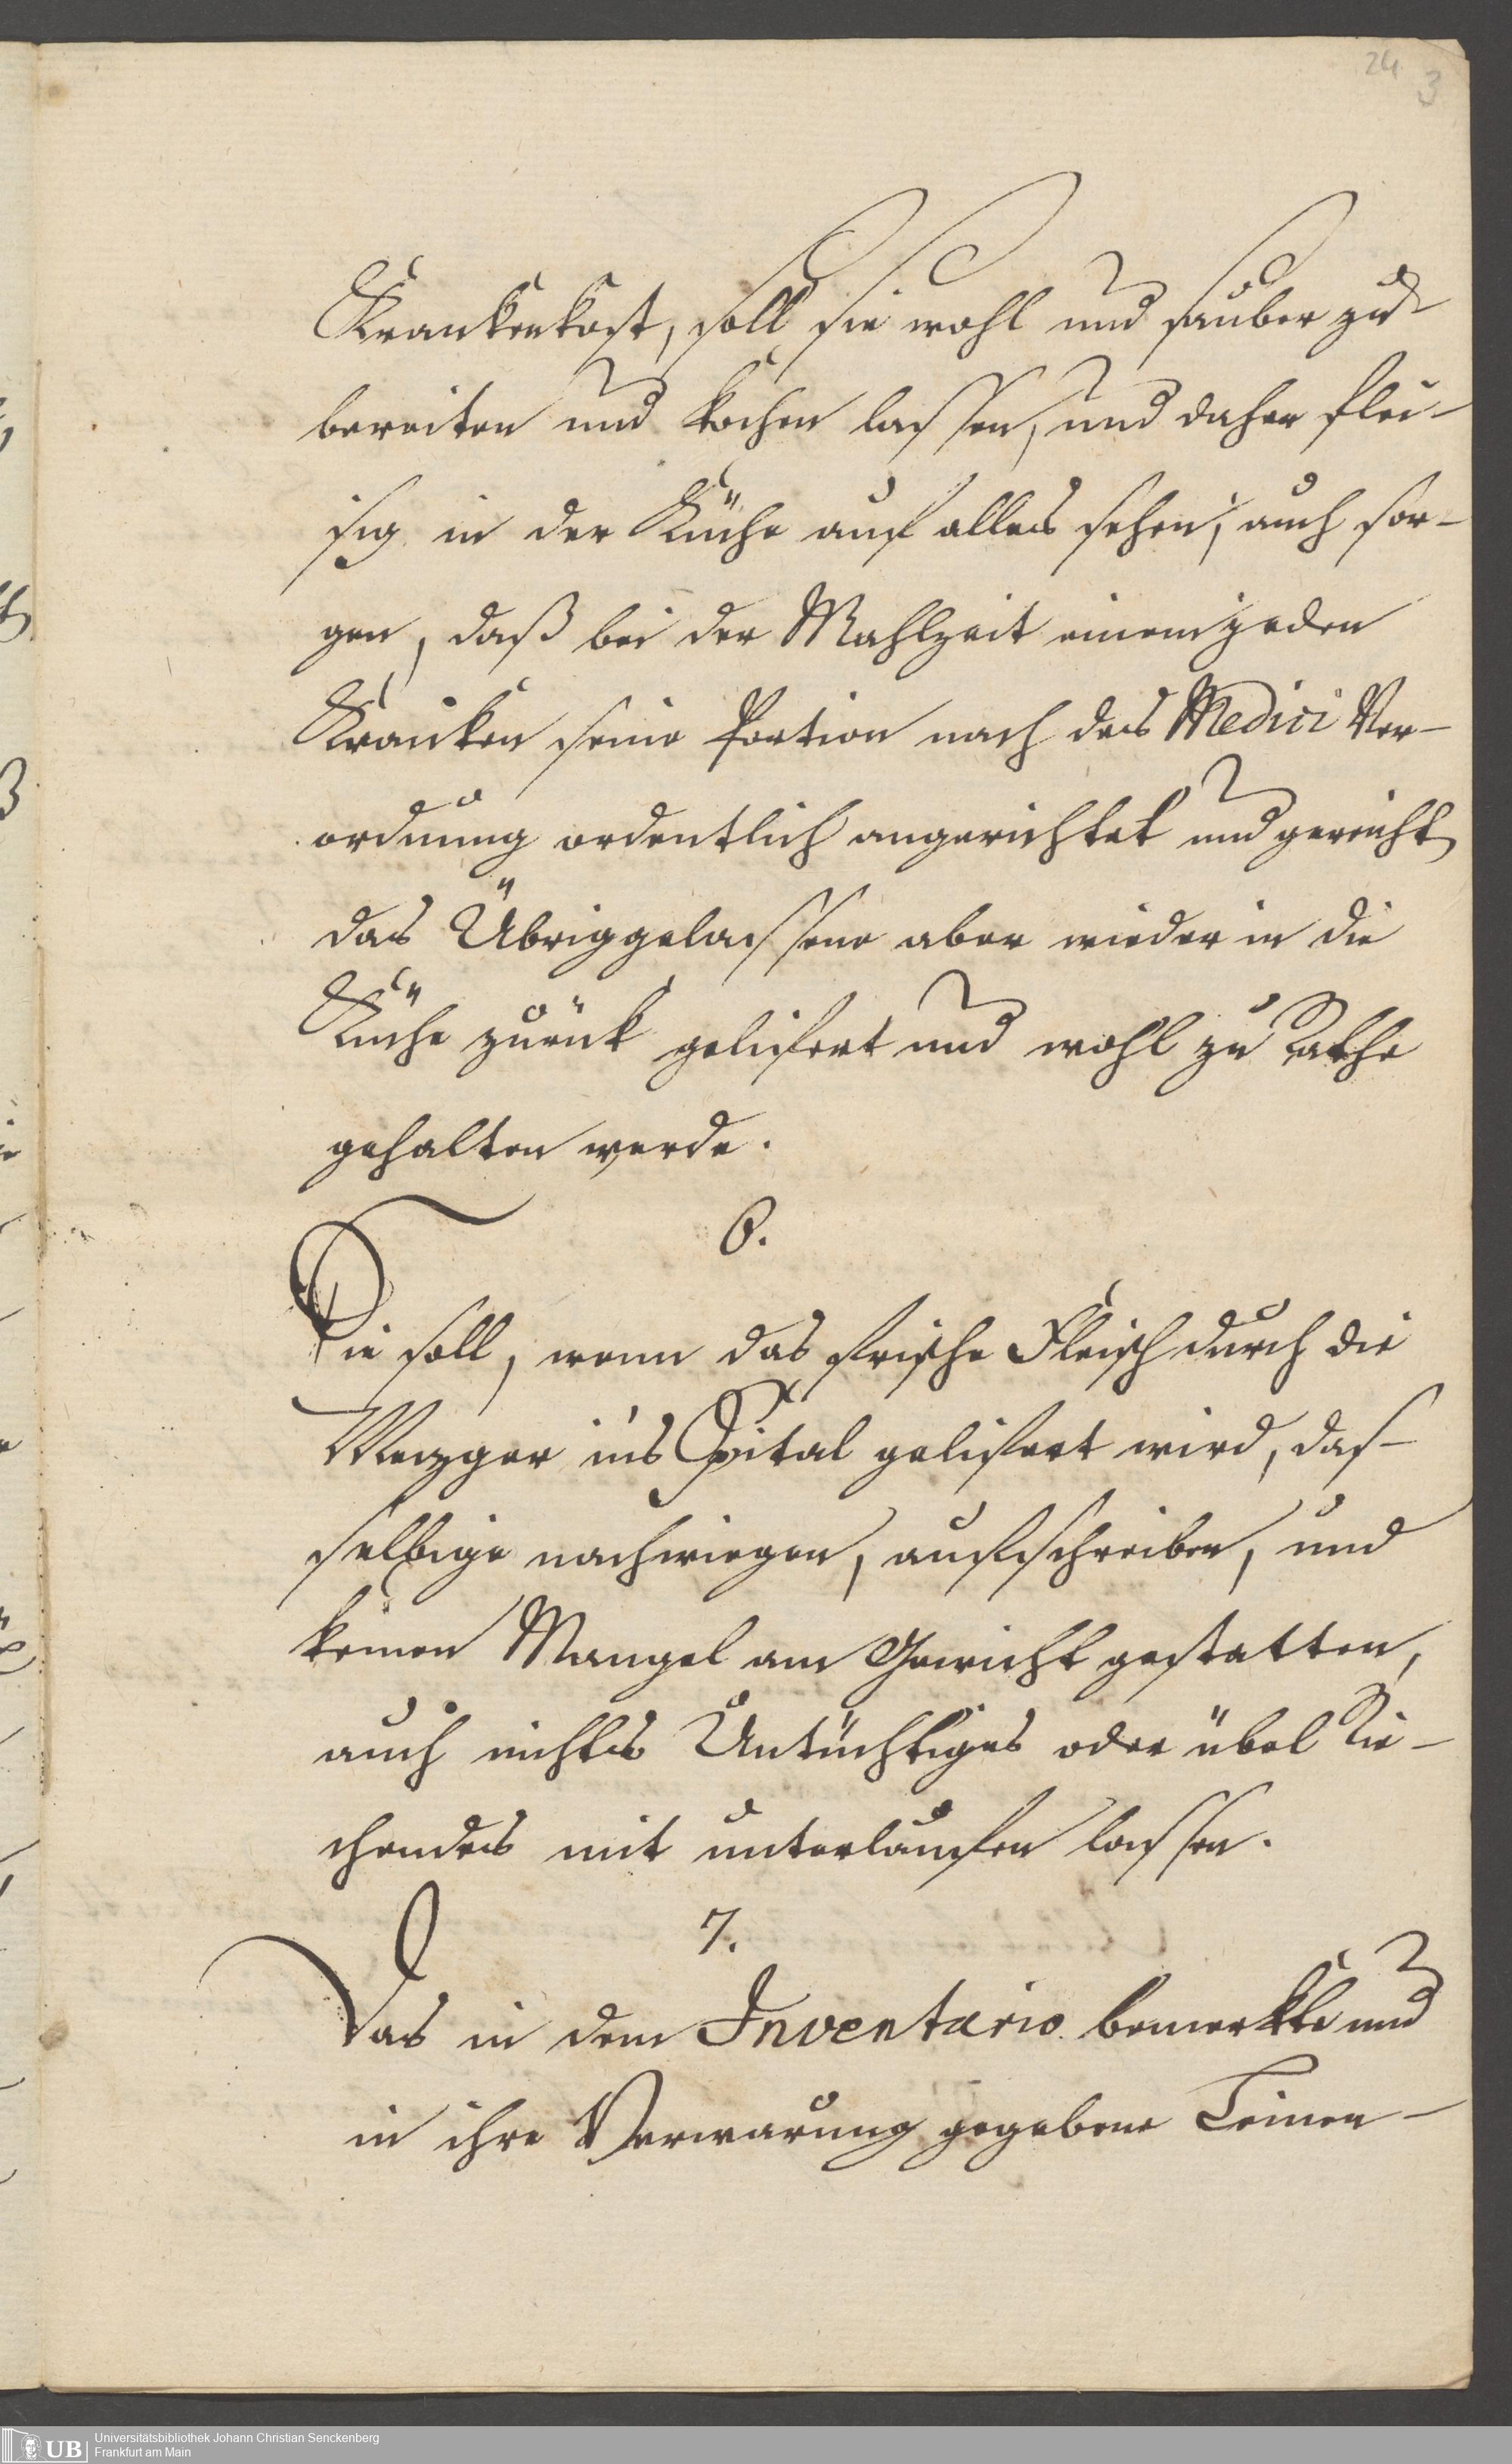 24
3
Krankenkost, soll sie wohl und sauber zu
bereiten und kochen lassen, und daher flei-
sig in der Küche auf alles sehen, auch sor-
gen, daß bei der Mahlzeit einem jeden
Kranken seine Portion nach des Medici Ver-
ordnung ordentlich angerichtet und gereicht,
das Übriggelassene aber wieder in die
Küche zurück geliefert und wohl zu Rathe
gehalten werde.
6.
Sie soll, wenn das frische Fleisch durch die
Mezger ins Spital geliefert wird, das-
selbige nachwiegen, aufschreiben, und
keinen Mangel am Gewicht gestatten,
auch nichts Untüchtiges oder übel Rie-
chendes mit unterlaufen lassen.
7.
Das in dem Inventario bemerkte und
in ihre Verwarung gegebene Leinen-
UB
Universitätsbibliothek Johann Christian Senckenberg
Frankfurt am Main